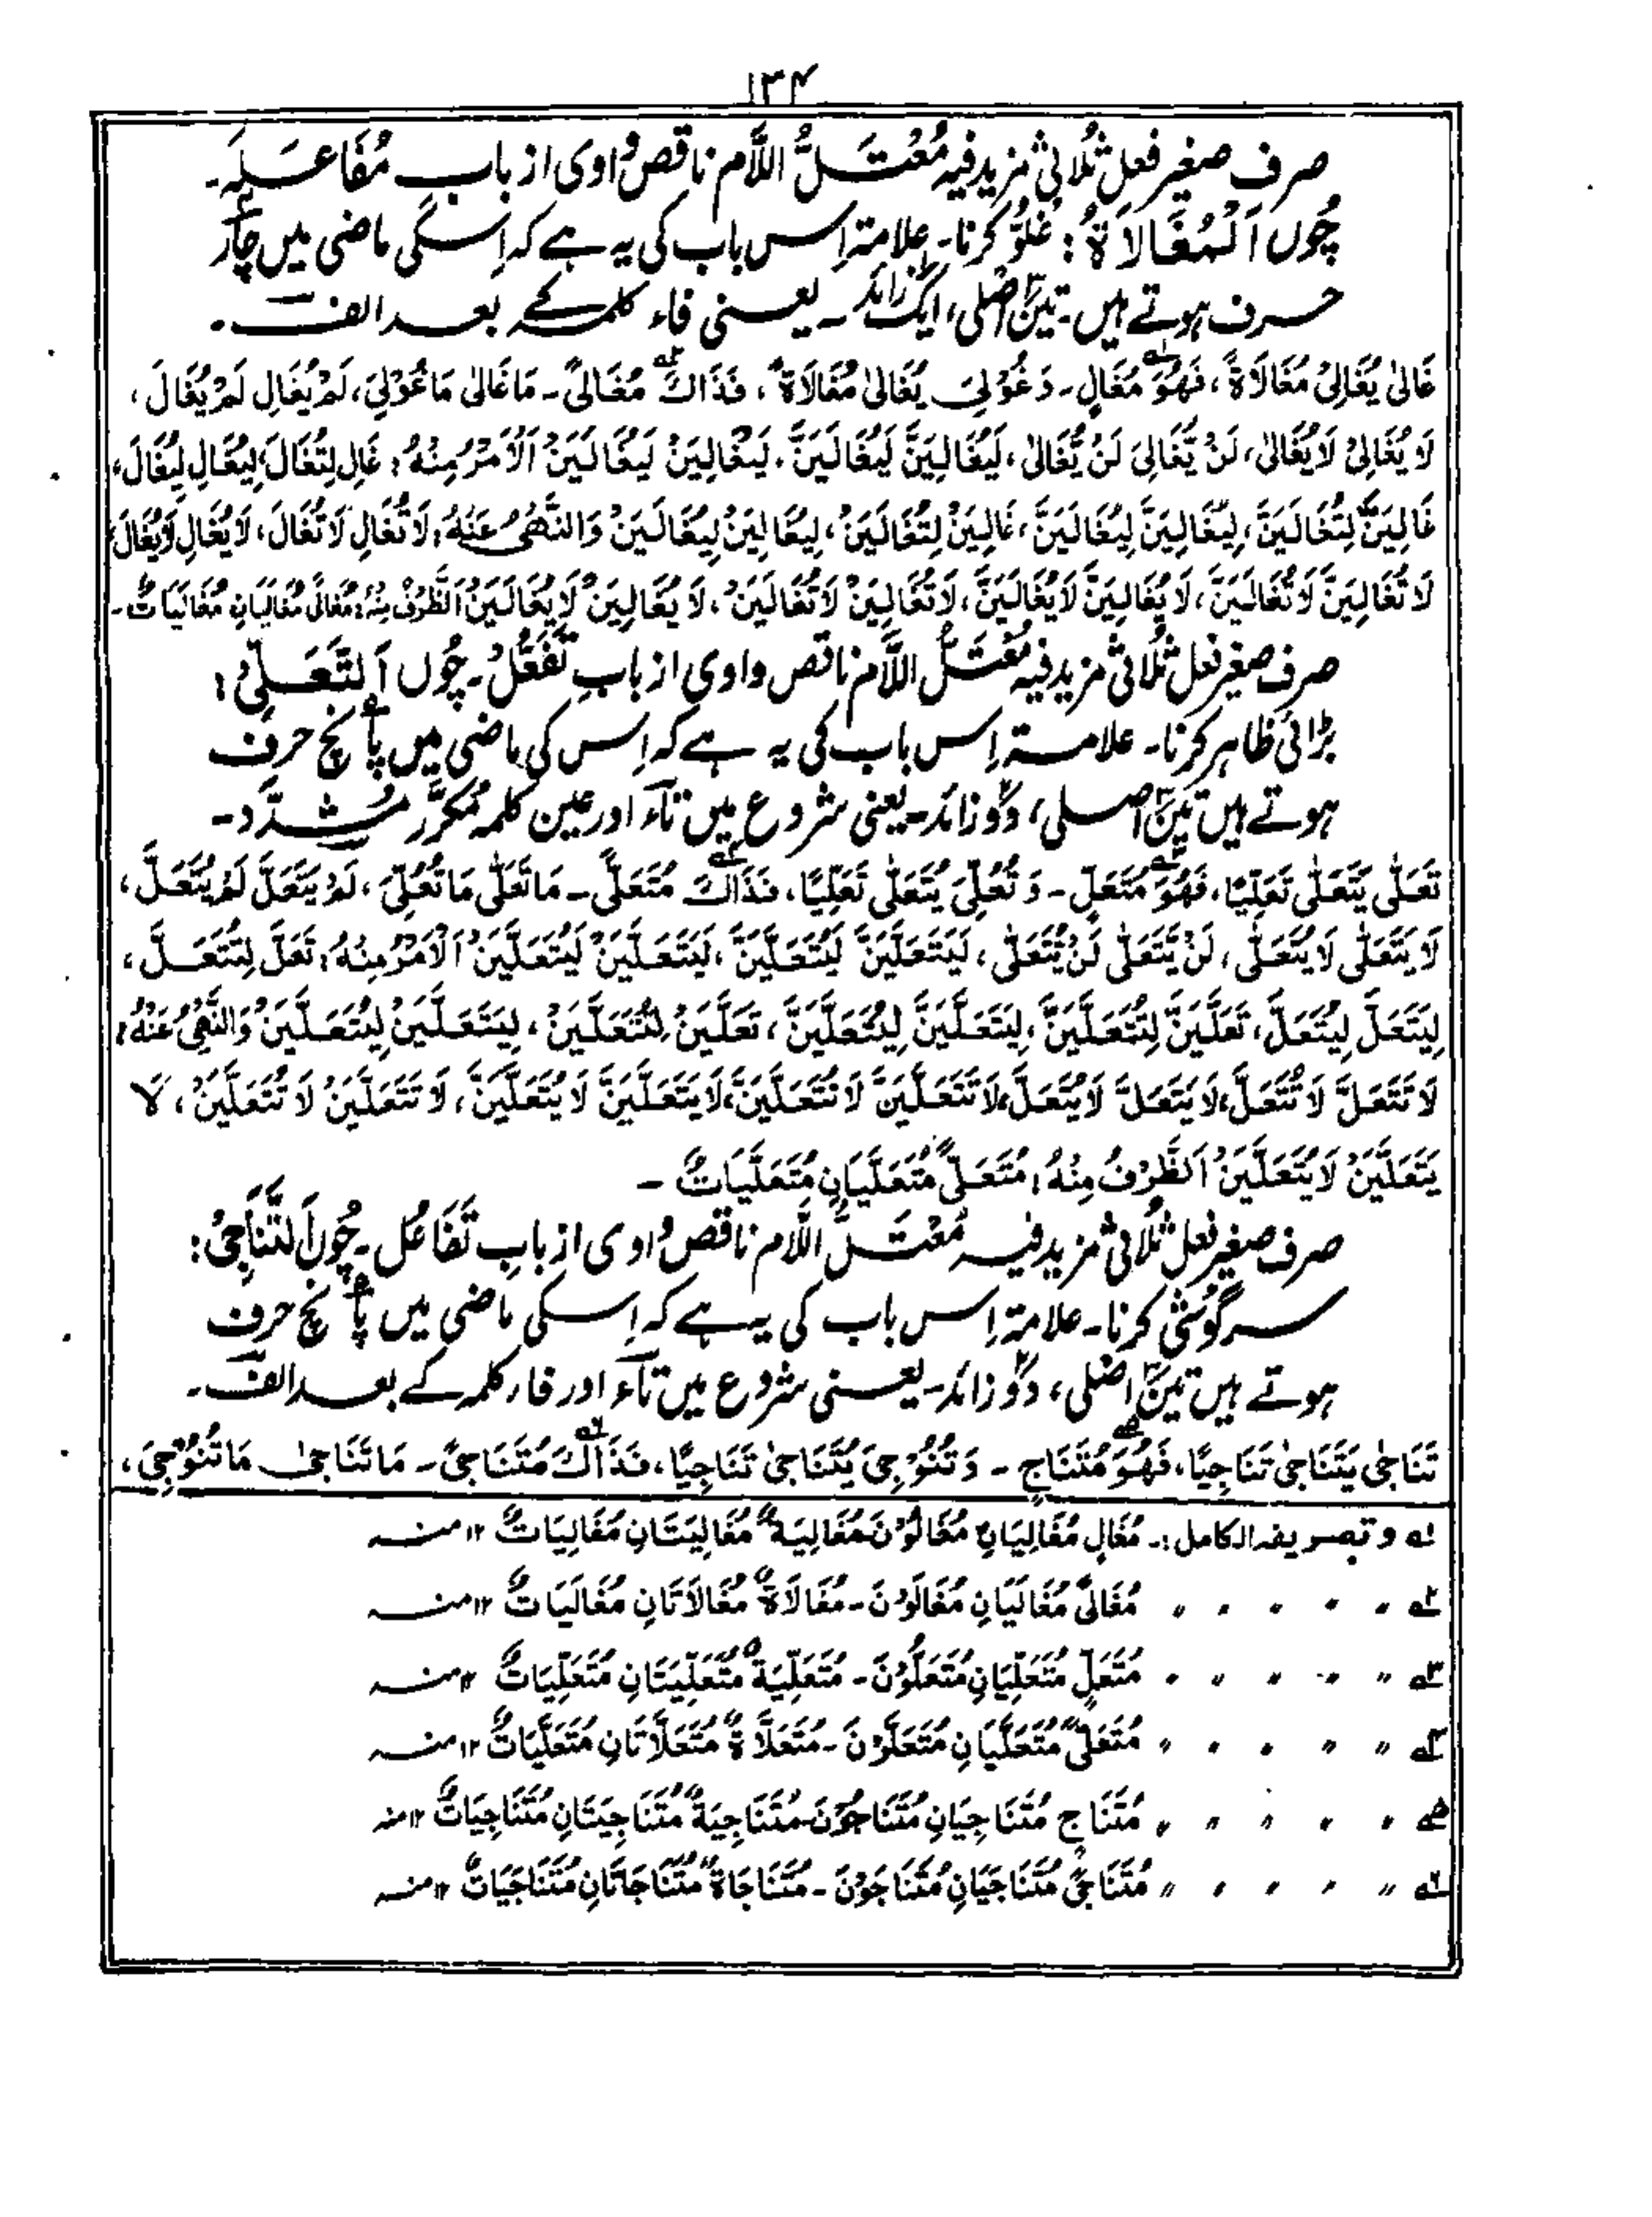 ۱۳۴
صرف صغیر فعل ثُلاثی مزید فیہ مُعْتَلُّ اللَّام ناقص واوی از باب مُفَاعَلَہ۔
چُوں اَلْمُغَالَاةُ: غُلُوّ کرنا۔ علامۃ اِس باب کی یہ ہے کہ اِسکی ماضی میں چار
حرف ہوتے ہیں۔ تین اصلی، ایک زائد۔ یعنی فاء کلمہ کے بعد الف۔
غَالٰى يُغَالِيْ مُغَالَاةً، فَهُوَ مُغَالٍ۔ وَغُوْلِيَ يُغَالٰى مُغَالَاةً، فَذَاكَ مُغَالًى۔ مَا غَالٰى مَا غُوْلِيَ، لَمْ يُغَالِ لَمْ يُغَالَ،
لَا يُغَالِيْ لَا يُغَالٰى، لَنْ يُّغَالِيَ لَنْ يُّغَالٰى، لَيُغَالِيَنَّ لَيُغَالَيَنَّ، لَيُغَالِيَنْ لَيُغَالَيَنْ اَلْاَمْرُ مِنْهُ: غَالِ لِتُغَالَ، لِيُغَالِ لِيُغَالَ،
غَالِيَنَّ لِتُغَالَيَنَّ، لِيُغَالِيَنَّ لِيُغَالَيَنَّ، غَالِيَنْ لِتُغَالَيَنْ، لِيُغَالِيَنْ لِيُغَالَيَنْ وَالنَّهْيُ عَنْهُ: لَا تُغَالِ لَا تُغَالَ، لَا يُغَالِ لَا يُغَالَ،
لَا تُغَالِيَنَّ لَا تُغَالَيَنَّ، لَا يُغَالِيَنَّ لَا يُغَالَيَنَّ، لَا تُغَالِيَنْ لَا تُغَالَيَنْ، لَا يُغَالِيَنْ لَا يُغَالَيَنْ اَلظَّرْفُ مِنْهُ: مُغَالًى مُغَالَيَانِ مُغَالَيَاتٌ۔
صرف صغیر فعل ثُلاثی مزید فیہ مُعْتَلُّ اللَّام ناقص واوی از بابِ تَفَعُّلْ۔ چُوں اَلتَّعَلِّيْ:
بڑائی ظاہر کرنا۔ علامۃ اِس باب کی یہ ہے کہ اِس کی ماضی میں پانچ حرف
ہوتے ہیں تین اصلی، دو زائد۔ یعنی شروع میں تاء اور عین کلمہ مُکرَّر مُشدَّد۔
تَعَلّٰى يَتَعَلّٰى تَعَلِّيًا، فَهُوَ مُتَعَلٍّ۔ وَتُعُلِّيَ يُتَعَلّٰى تَعَلِّيًا، فَذَاكَ مُتَعَلًّى۔ مَا تَعَلّٰى مَا تُعُلِّيَ، لَمْ يَتَعَلَّ لَمْ يُتَعَلَّ،
لَا يَتَعَلّٰى لَا يُتَعَلّٰى، لَنْ يَّتَعَلّٰى لَنْ يُّتَعَلّٰى، لَيَتَعَلَّيَنَّ لَيُتَعَلَّيَنَّ، لَيَتَعَلَّيَنْ لَيُتَعَلَّيَنْ اَلْاَمْرُ مِنْهُ: تَعَلَّ لِتُتَعَلَّ،
لِيَتَعَلَّ لِيُتَعَلَّ، تَعَلَّيَنَّ لِتُتَعَلَّيَنَّ، لِيَتَعَلَّيَنَّ لِيُتَعَلَّيَنَّ، تَعَلَّيَنْ لِتُتَعَلَّيَنْ، لِيَتَعَلَّيَنْ لِيُتَعَلَّيَنْ وَالنَّهْيُ عَنْهُ:
لَا تَتَعَلَّ لَا تُتَعَلَّ، لَا يَتَعَلَّ لَا يُتَعَلَّ، لَا تَتَعَلَّيَنَّ لَا تُتَعَلَّيَنَّ، لَا يَتَعَلَّيَنَّ لَا يُتَعَلَّيَنَّ، لَا تَتَعَلَّيَنْ لَا تُتَعَلَّيَنْ، لَا
يَتَعَلَّيَنْ لَا يُتَعَلَّيَنْ اَلظَّرْفُ مِنْهُ: مُتَعَلًّى مُتَعَلَّيَانِ مُتَعَلَّيَاتٌ۔
صرف صغیر فعل ثُلاثی مزید فیہ مُعْتَلُّ اللَّام ناقص واوی از بابِ تَفَاعُل۔ چُوں اَلتَّنَاجِيْ:
سرگوشی کرنا۔ علامۃ اِس باب کی یہ ہے کہ اِسکی ماضی میں پانچ حرف
ہوتے ہیں تین اصلی، دو زائد۔ یعنی شروع میں تاء اور فاء کلمہ کے بعد الف۔
تَنَاجٰى يَتَنَاجٰى تَنَاجِيًا، فَهُوَ مُتَنَاجٍ۔ وَتُنُوْجِيَ يُتَنَاجٰى تَنَاجِيًا، فَذَاكَ مُتَنَاجًى۔ مَا تَنَاجٰى مَا تُنُوْجِيَ،
۱؎ وتصریفہ الکامل:۔ مُغَالٍ مُغَالِيَانِ مُغَالُوْنَ مُغَالِيَةٌ مُغَالِيَتَانِ مُغَالِيَاتٌ ۱۲ منہ
۲؎ 〃 〃 〃 〃 〃 مُغَالًى مُغَالَيَانِ مُغَالَوْنَ۔ مُغَالَاةٌ مُغَالَاتَانِ مُغَالَيَاتٌ ۱۲ منہ
۳؎ 〃 〃 〃 〃 〃 مُتَعَلٍّ مُتَعَلِّيَانِ مُتَعَلُّوْنَ۔ مُتَعَلِّيَةٌ مُتَعَلِّيَتَانِ مُتَعَلِّيَاتٌ ۱۲ منہ
۴؎ 〃 〃 〃 〃 〃 مُتَعَلًّى مُتَعَلَّيَانِ مُتَعَلَّوْنَ۔ مُتَعَلَّاةٌ مُتَعَلَّاتَانِ مُتَعَلَّيَاتٌ ۱۲ منہ
۵؎ 〃 〃 〃 〃 〃 مُتَنَاجٍ مُتَنَاجِيَانِ مُتَنَاجُوْنَ۔ مُتَنَاجِيَةٌ مُتَنَاجِيَتَانِ مُتَنَاجِيَاتٌ ۱۲ منہ
۶؎ 〃 〃 〃 〃 〃 مُتَنَاجًى مُتَنَاجَيَانِ مُتَنَاجَوْنَ۔ مُتَنَاجَاةٌ مُتَنَاجَاتَانِ مُتَنَاجَيَاتٌ ۱۲ منہ